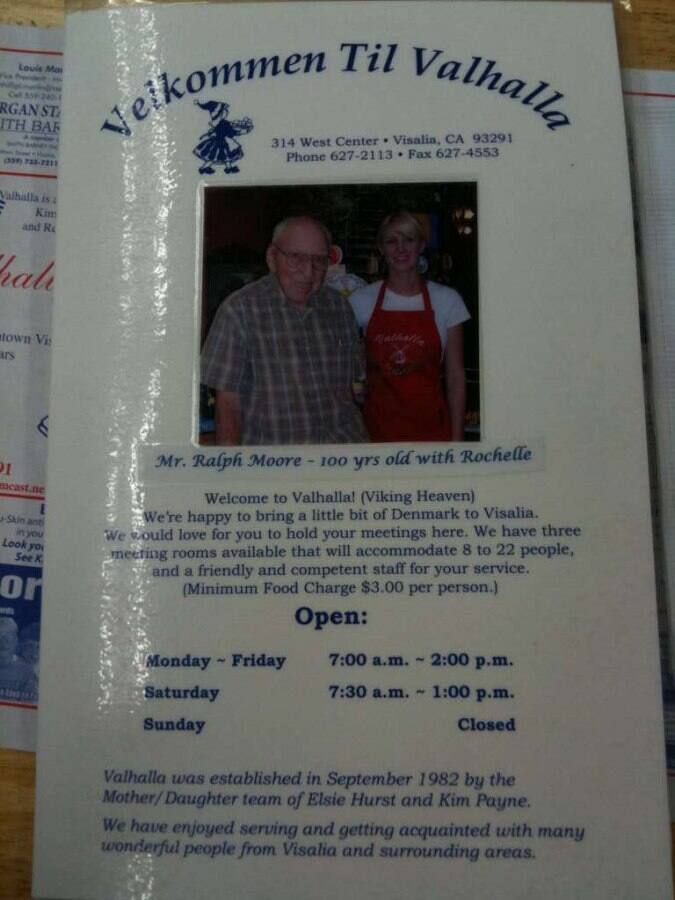 Velkommen Til Valhalla
314 West Center • Visalia, CA 93291
Phone 627-2113 • Fax 627-4553
Valhalla
Mr. Ralph Moore - 100 yrs old with Rochelle
Welcome to Valhalla! (Viking Heaven)
We're happy to bring a little bit of Denmark to Visalia.
We would love for you to hold your meetings here. We have three
meeting rooms available that will accommodate 8 to 22 people,
and a friendly and competent staff for your service.
(Minimum Food Charge $3.00 per person.)
Open:
Monday ~ Friday 7:00 a.m. ~ 2:00 p.m.
Saturday 7:30 a.m. ~ 1:00 p.m.
Sunday Closed
Valhalla was established in September 1982 by the
Mother/Daughter team of Elsie Hurst and Kim Payne.
We have enjoyed serving and getting acquainted with many
wonderful people from Visalia and surrounding areas.
Louis
Vice President
RGAN
ITH BAR
Valhalla is
Kim
and
town
91
in you
Look you
See K
or